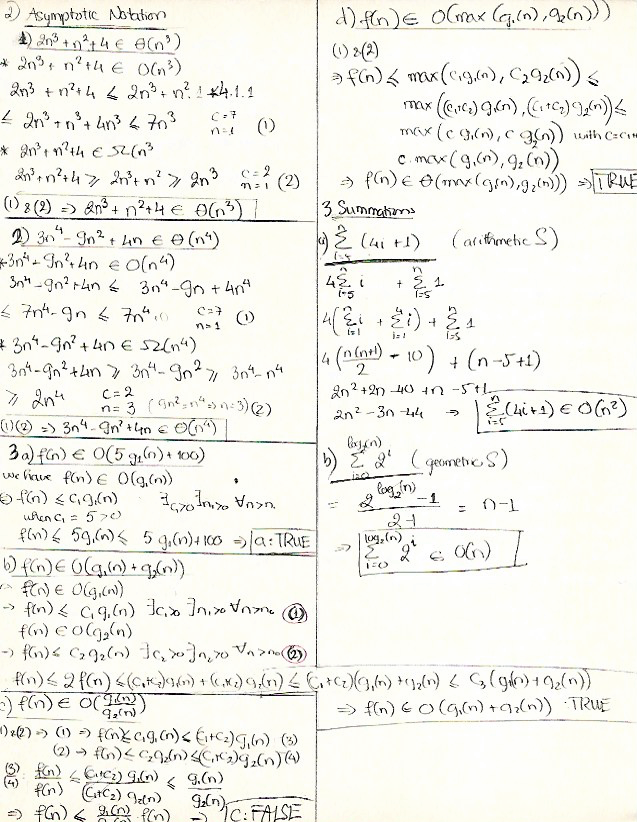 2) Asymptotic Notation
1) 2n³ + n² + 4 ∈ Θ(n³)
* 2n³ + n² + 4 ∈ O(n³)
2n³ + n² + 4 ≤ 2n³ + n².1 + 4.1.1
≤ 2n³ + n³ + 4n³ ≤ 7n³ c=7 n=1 (1)
* 2n³ + n² + 4 ∈ Ω(n³
2n³ + n² + 4 ≥ 2n³ + n² ≥ 2n³ c=2 n=1 (2)
(1) & (2) ⇒ 2n³ + n² + 4 ∈ Θ(n³)
2) 3n⁴ - 9n² + 4n ∈ Θ(n⁴)
* 3n⁴ - 9n² + 4n ∈ O(n⁴)
3n⁴ - 9n² + 4n ≤ 3n⁴ - 9n + 4n⁴
≤ 7n⁴ - 9n ≤ 7n⁴ c=7 n=1 (1)
* 3n⁴ - 9n² + 4n ∈ Ω(n⁴)
3n⁴ - 9n² + 4n ≥ 3n⁴ - 9n² ≥ 3n⁴ - n⁴
≥ 2n⁴ c=2 n=3 (9n² = n⁴ ⇒ n=3) (2)
(1)(2) ⇒ 3n⁴ - 9n² + 4n ∈ Θ(n⁴)
3 a) f(n) ∈ O(5g₁(n) + 100)
we have f(n) ∈ O(g₁(n))
⇒ f(n) ≤ c₁g₁(n) ∃c₁>0 ∃n₁>0 ∀n>n₀
when c₁ = 5 > 0
f(n) ≤ 5g₁(n) ≤ 5g₁(n) + 100 ⇒ a: TRUE
b) f(n) ∈ O(g₁(n) + g₂(n))
f(n) ∈ O(g₁(n))
→ f(n) ≤ c₁g₁(n) ∃c₁>0 ∃n₁>0 ∀n>n₀ (1)
f(n) ∈ O(g₂(n)
→ f(n) ≤ c₂g₂(n) ∃c₂>0 ∃n₂>0 ∀n>n₀ (2)
f(n) ≤ 2f(n) ≤ (c₁+c₂)g₁(n) + (c₁+c₂)g₂(n) ≤ (c₁+c₂)(g₁(n) + g₂(n) ≤ c₃(g₁(n) + g₂(n))
⇒ f(n) ∈ O(g₁(n) + g₂(n)) TRUE
c) f(n) ∈ O(g₁(n)/g₂(n))
(1)&(2) ⇒ (1) ⇒ f(n) ≤ c₁g₁(n) ≤ (c₁+c₂)g₁(n) (3)
(2) → f(n) ≤ c₂g₂(n) ≤ (c₁+c₂)g₂(n) (4)
(3)/(4) f(n)/f(n) ≤ (c₁+c₂)g₁(n)/(c₁+c₂)g₂(n) ≤ g₁(n)/g₂(n)
⇒ f(n) ≤ g₁(n)/g₂(n) f(n) → C: FALSE
d) f(n) ∈ O(max(g₁(n), g₂(n)))
(1) & (2)
⇒ f(n) ≤ max(c₁g₁(n), c₂g₂(n)) ≤
max((c₁+c₂)g₁(n), (c₁+c₂)g₂(n)) ≤
max(c g₁(n), c g₂(n)) with c=c₁+
c.max(g₁(n), g₂(n))
⇒ f(n) ∈ Θ(max(g₁(n), g₂(n))) ⇒ TRUE
3 Summations
a) ∑ⁿᵢ₌₅ (4i+1) (arithmetic S)
4∑ⁿᵢ₌₅ i + ∑ⁿᵢ₌₅ 1
4(∑ⁿᵢ₌₁ i + ∑⁴ᵢ₌₁ i) + ∑ⁿᵢ₌₅ 1
4(n(n+1)/2 - 10) + (n-5+1)
2n² + 2n - 40 + n - 5 + 1
2n² - 3n - 44 ⇒ ∑ⁿᵢ₌₅ (4i+1) ∈ O(n²)
b) ∑_{i=0}^{log₂(n)} 2ⁱ (geometric S)
= (2^{log₂(n)} - 1)/(2-1) = n-1
⇒ ∑_{i=0}^{log₂(n)} 2ⁱ ∈ O(n)